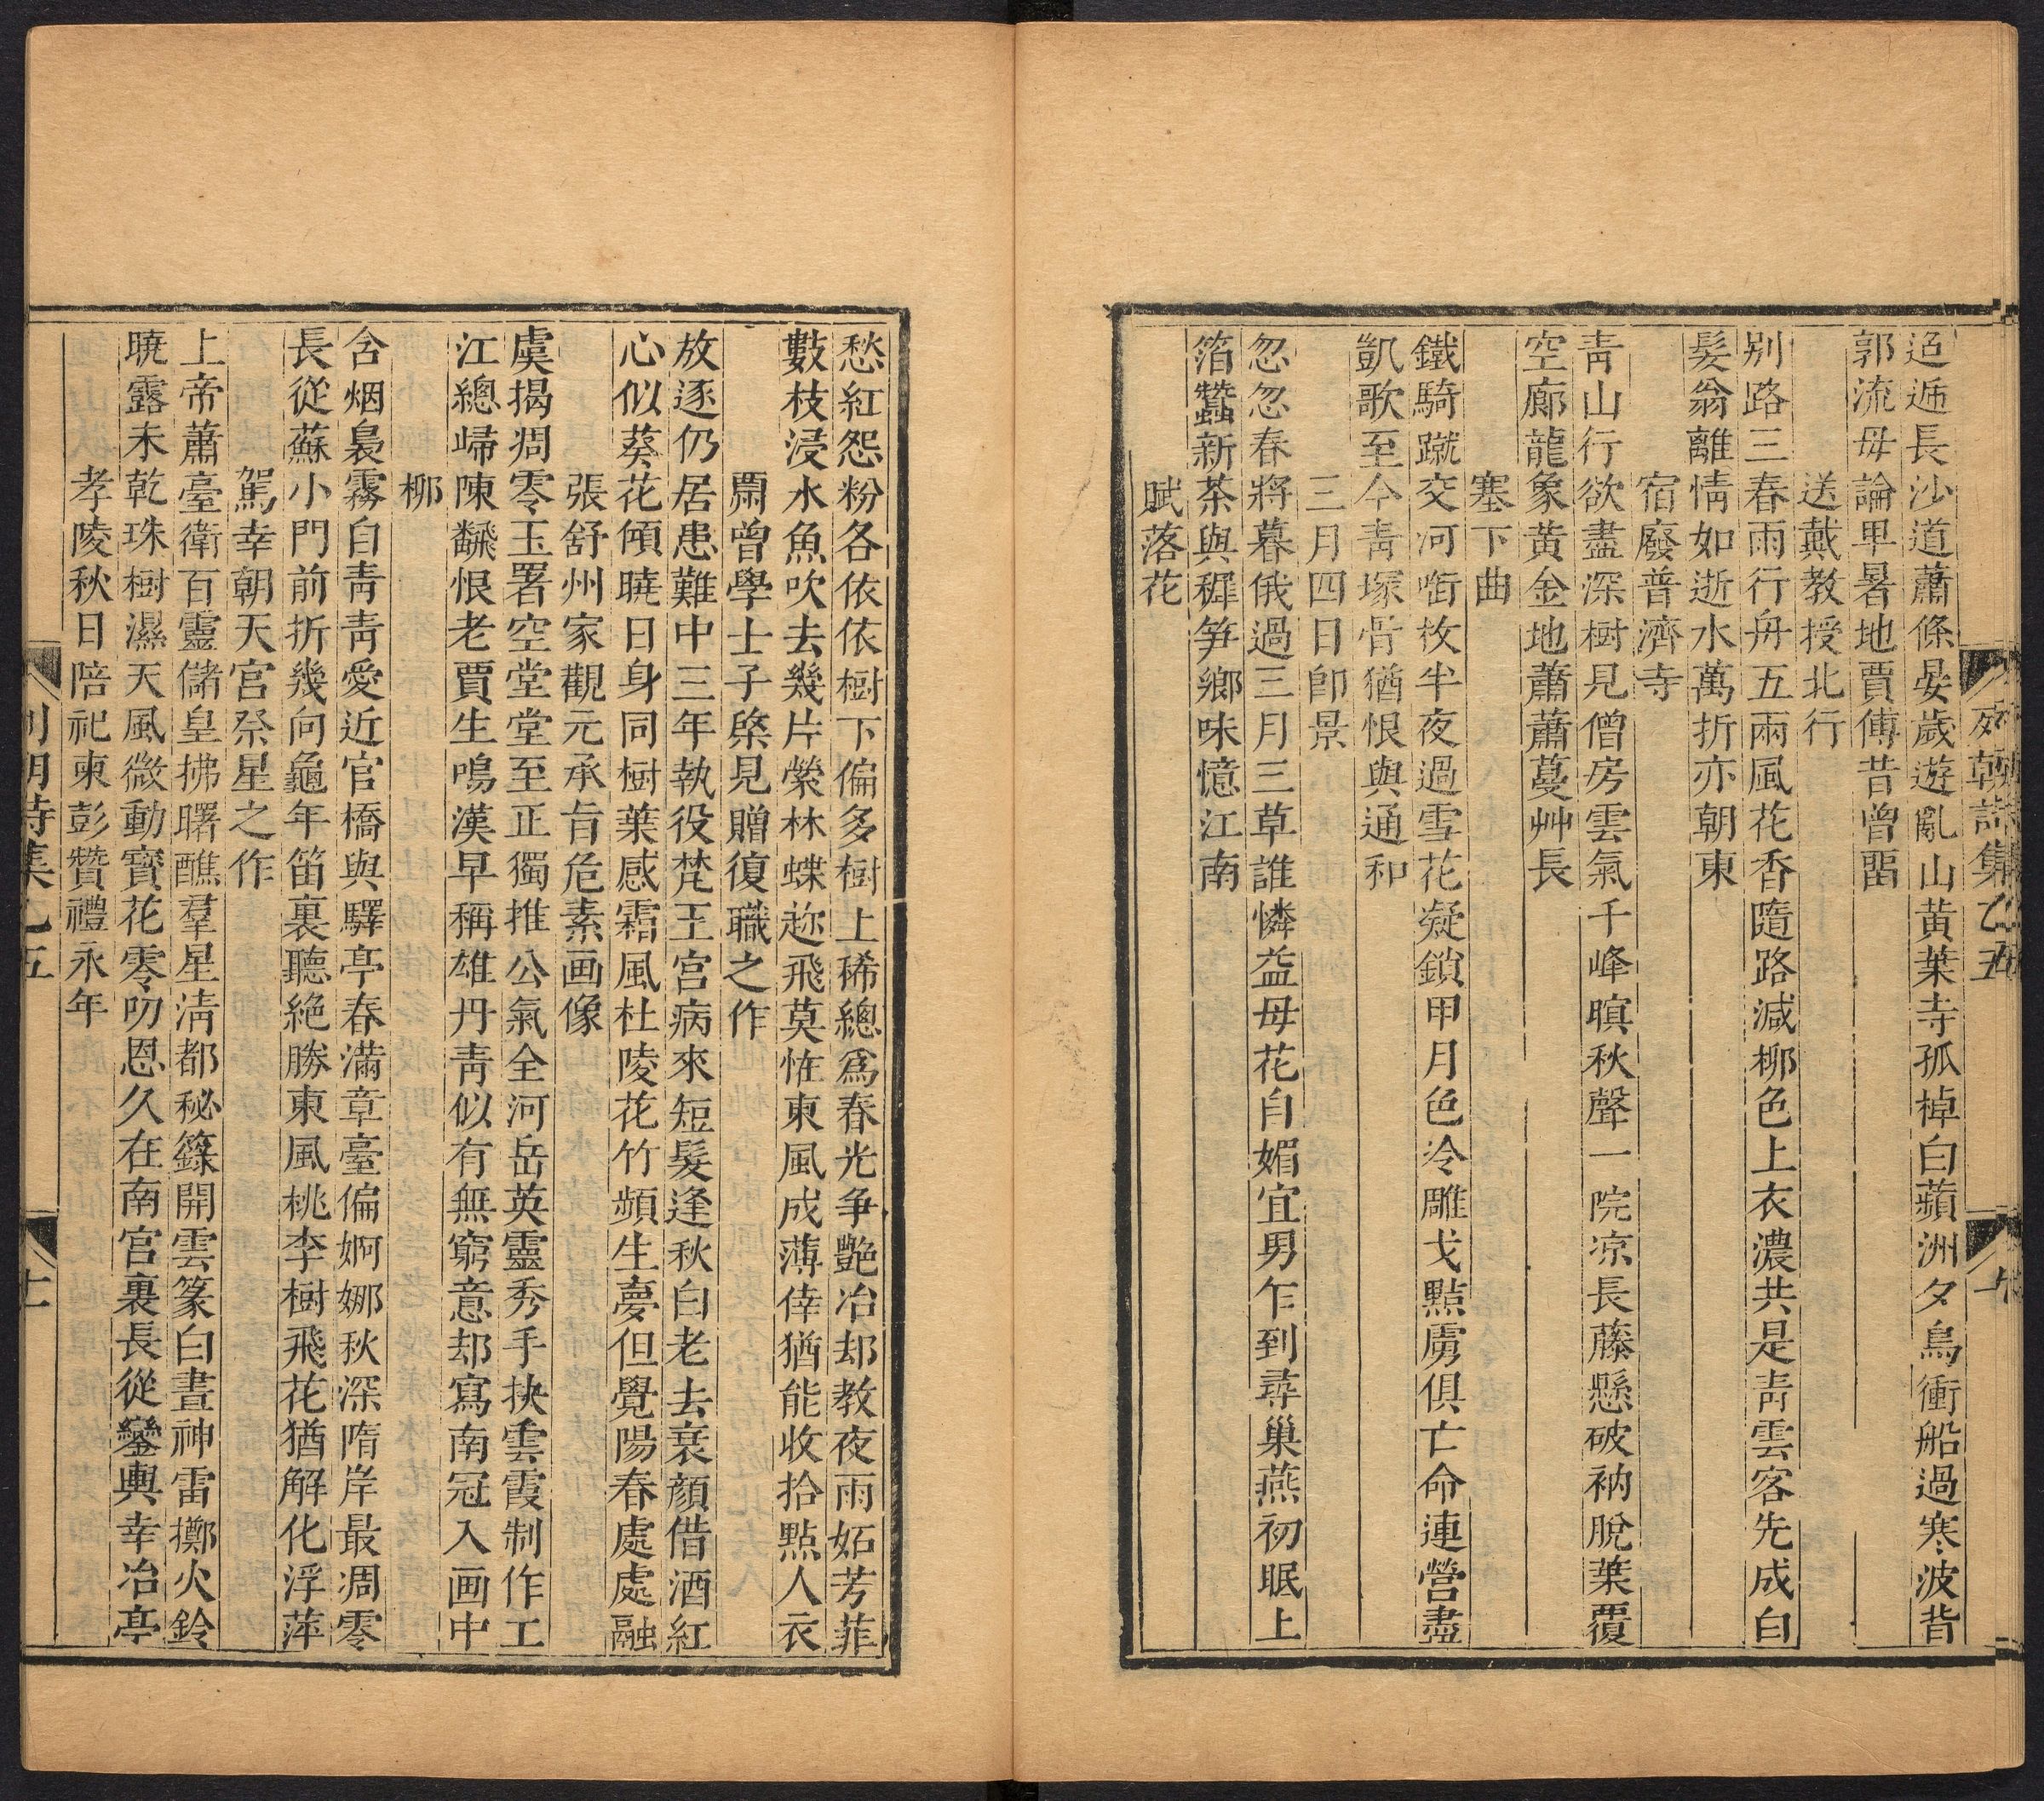 迢遞長沙道蕭條晏歲遊亂山黄葉寺孤棹白蘋洲夕鳥衝船過寒波背
郭流毋論卑暑地賈傅昔曾畱
送戴教授北行
別路三春雨行舟五兩風花香隨路減柳色上衣濃共是青雲客先成白
髮翁離情如逝水萬折亦朝東
宿廢普濟寺
青山行欲盡深樹見僧房雲氣千峰暝秋聲一院凉長藤懸破衲脫葉覆
空廊龍象黄金地蕭蕭蔓艸長
塞下曲
鐵騎蹴交河銜枚半夜過雪花凝鎖甲月色冷雕戈點虜俱亡命連營盡
凱歌至今青塚骨猶恨與通和
三月四日卽景
忽忽春將暮俄過三月三草誰憐益母花自媚宜男乍到尋巢燕初眠上
箔蠶新茶與穉笋鄉味憶江南
賦落花
愁紅怨粉各依依樹下偏多樹上稀總爲春光争艶冶却教夜雨妬芳菲
數枝浸水魚吹去幾片縈林蝶趂飛莫恠東風成薄倖猶能收拾點人衣
䦘曾學士子棨見贈復職之作
放逐仍居患難中三年執役梵王宫病來短髮逢秋白老去衰顔借酒紅
心似葵花傾曉日身同樹葉感霜風杜陵花竹頻生夢但覺陽春處處融
張舒州家觀元承旨危素画像
虞揭凋零玉署空堂堂至正獨推公氣全河岳英靈秀手抉雲霞制作工
江總歸陳飜恨老賈生鳴漢早稱雄丹青似有無窮意却寫南冠入画中
柳
含烟裊霧自青青愛近官橋與驛亭春滿章臺偏婀娜秋深隋岸最凋零
長從蘇小門前折幾向龜年笛裏聽絶勝東風桃李樹飛花猶解化浮萍
駕幸朝天宫祭星之作
上帝蕭臺衛百靈儲皇拂曙醮羣星淸都秘籙開雲篆白晝神雷擲火鈴
曉露未乾珠樹濕天風微動寳花零叨恩久在南宫裏長從鑾輿幸冶亭
孝陵秋日陪祀柬彭贊禮永年